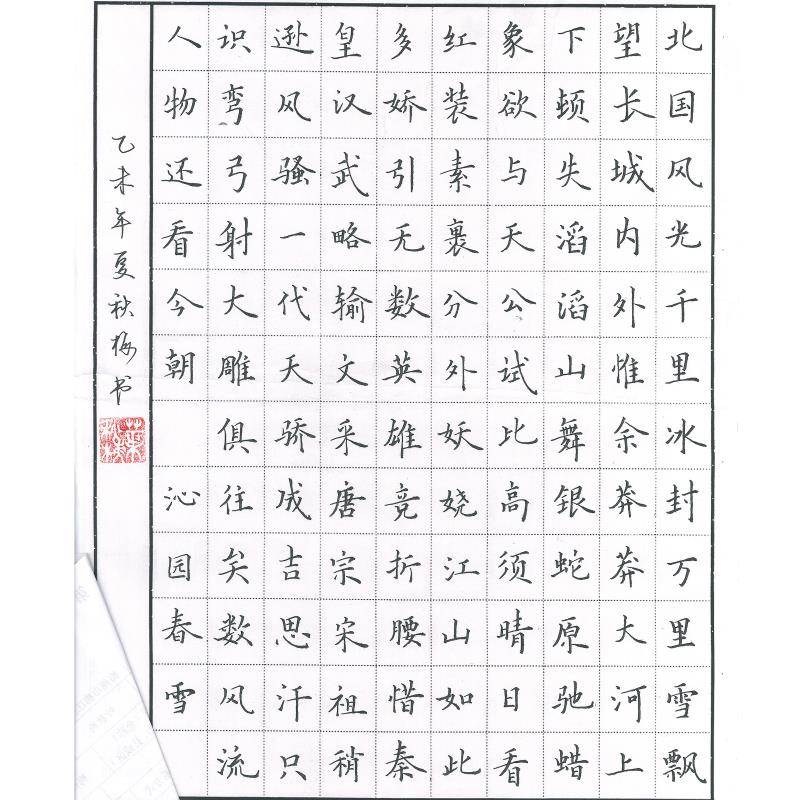 北国风光千里冰封万里雪飘
望长城内外惟余莽莽大河上
下顿失滔滔山舞银蛇原驰蜡
象欲与天公试比高须晴日看
红装素裹分外妖娆江山如此
多娇引无数英雄竞折腰惜秦
皇汉武略输文采唐宗宋祖稍
逊风骚一代天骄成吉思汗只
识弯弓射大雕俱往矣数风流
人物还看今朝 沁园春雪
乙未年夏秋梅书